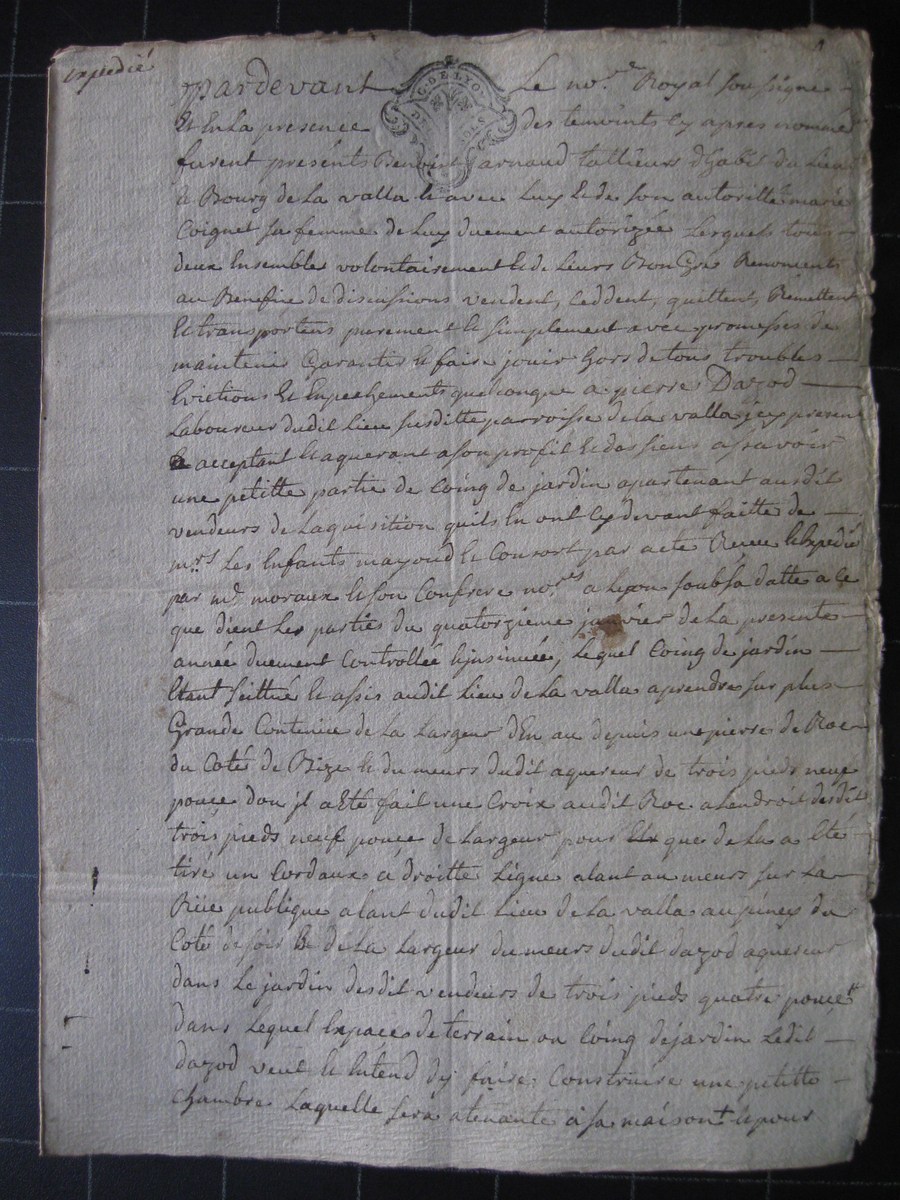 expedié
pardevant Le no.re Royal soussigné
GEN. DE LYON
DEUX SOLS
Et En La presence des temoints Cy apres nommé
furent presents Benoist arnaud tallieurs d'habit du Lieu
à Bourg de La valla & avec Luy & de son autoritté marie
Coignet sa femme de Luy duement autorizée Lesquels tous
deux Ensembles volontairement & de Leurs Bon Grés Renoncents
au Benefice de discussions vendent, Ceddent, quittent, Remettent
& transportens purement & simplement avec promesses de
maintenir Garantir & faire jouir hors de tous troubles
Evictions Et Enpechements quelconque a pierre Dazod
Laboureur dudit Lieu susditte parroisse de La valla jcy present
acceptant & aquerant a son profit & des siens assavoir
une petitte partie de Coing de jardin apartenant ausdit
vendeurs de Laquisition quils En ont Cy devant faitte de
mrs Les Enfants mayoud & Consort par acte Receu & Expedié
par me. moraux & son Confrere no.res a Lyon soub sa datte a Ce
que dient Les parties du quatorzième janvier de La presente
année duement Controllée & jnsinuée, Lequel Coing de jardin
Etant scittué & assis audit Lieu de La valla aprendre sur plus
Grande Contenüe de La Largeur d'En au depuis une pierre de Roc
du Coté de Bize & du meurs dudit aquereur de trois pieds neuf
pouce dou jl a Eté fait une Croix audit Roc a Lendroit desdit
trois pieds neuf pouce de Largeur pour que de La a Eté
tiré un Cordaux a droitte Ligne alant au meurs sur La
Rüe publique alant dudit Lieu de La valla au piney du
Coté de soir & de La Largeur du meurs dudit dazod aquereur
dans Le jardin desdit vendeurs de trois pieds quatre pouce
dans Lequel Expace de terrain ou Coing de jardin Ledit
dazod veut & Entend dy faire Construire une petitte
Chambre Laquelle sera atenante a sa maison + & pour